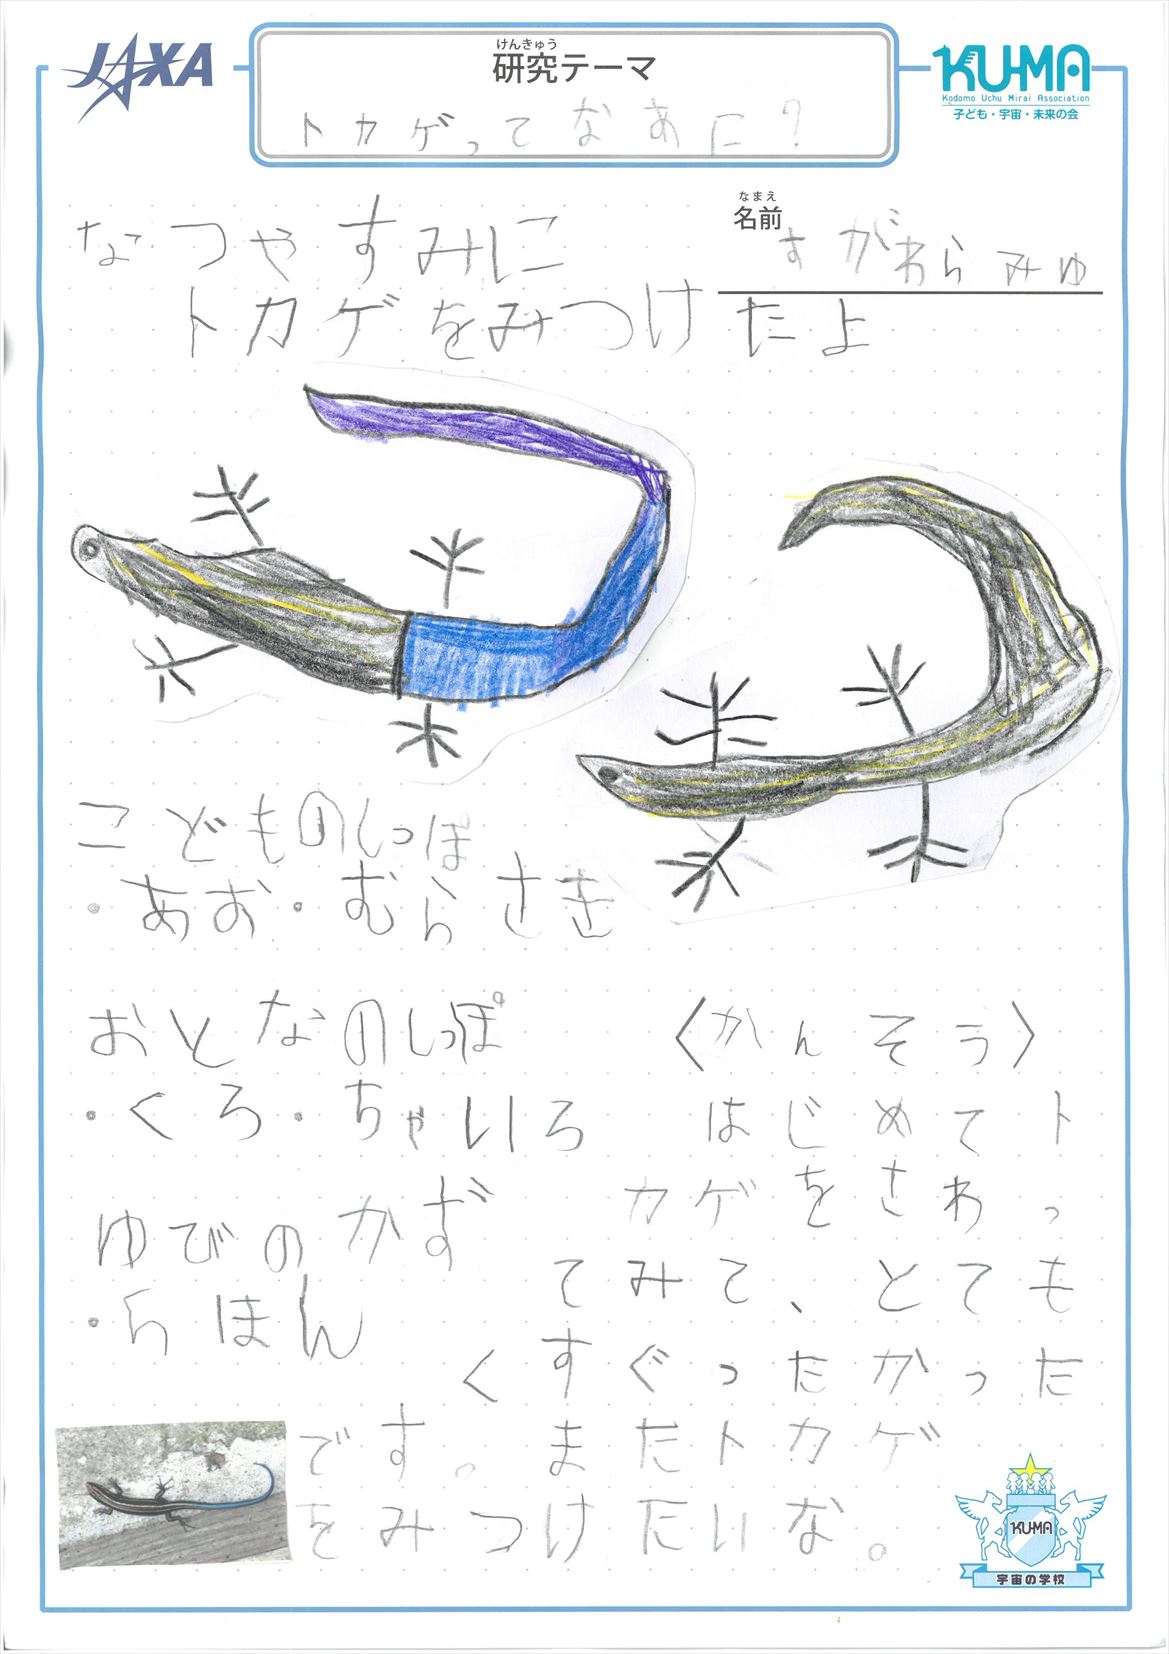 JAXA
けんきゅう
研究テーマ
トカゲってなあに?
KU-MA
Kodomo Uchu Mirai Association
子ども・宇宙・未来の会
なまえ
名前
すがわらみゆ
なつやすみに
トカゲをみつけたよ
こどものしっぽ
・あお・むらさき
おとなのしっぽ
・くろ・ちゃいろ
ゆびのかず
・5ほん
〈かんそう〉
はじめてト
カゲをさわっ
てみて、とても
くすぐったかった
です。またトカゲ
をみつけたいな。
KU-MA
宇宙の学校